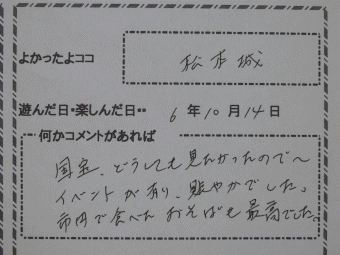 よかったよココ
松本城
遊んだ日・楽しんだ日・・ 6年10月14日
何かコメントがあれば
国宝、どうしても見たかったので〜
イベントが有り、賑やかでした。
市内で食べたおそばも最高でした。